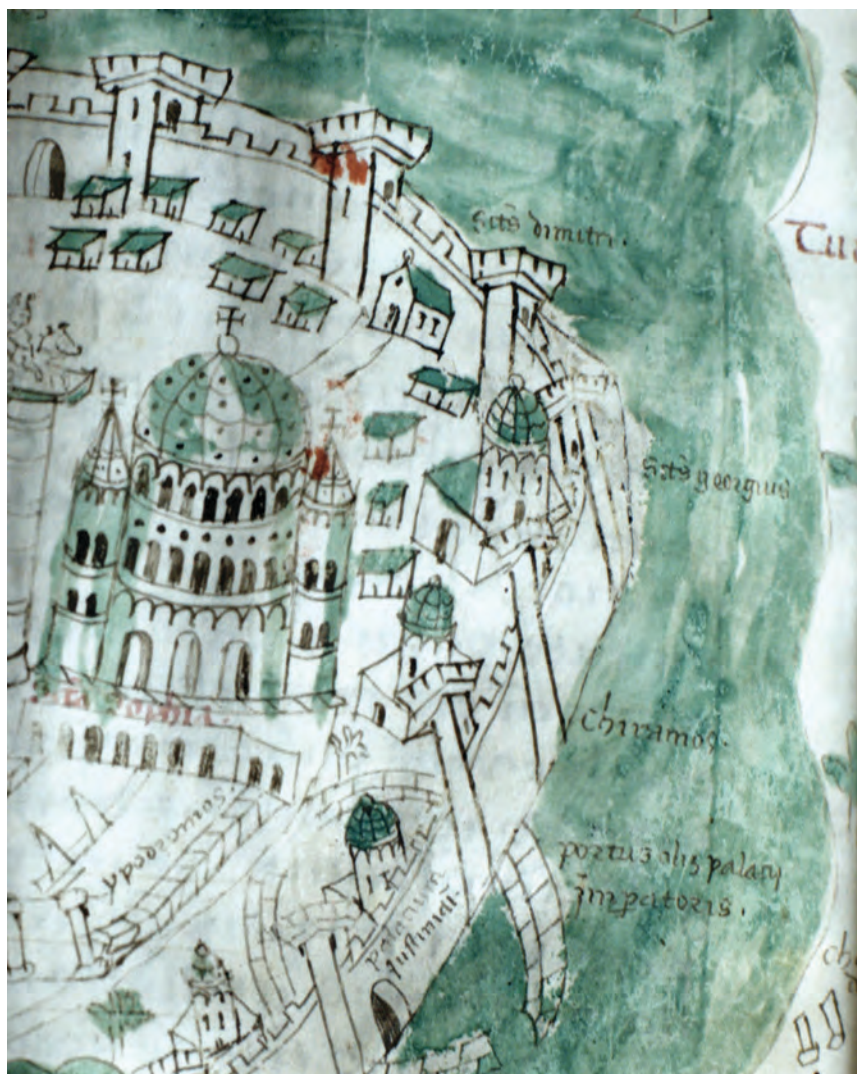 sctʒ dimitri.
Tu
sctʒ georgius
sca sophia.
chiramos.
ypodromos
portus olis palacij
Imperatoris.
palatium
Iustiniani.
ch